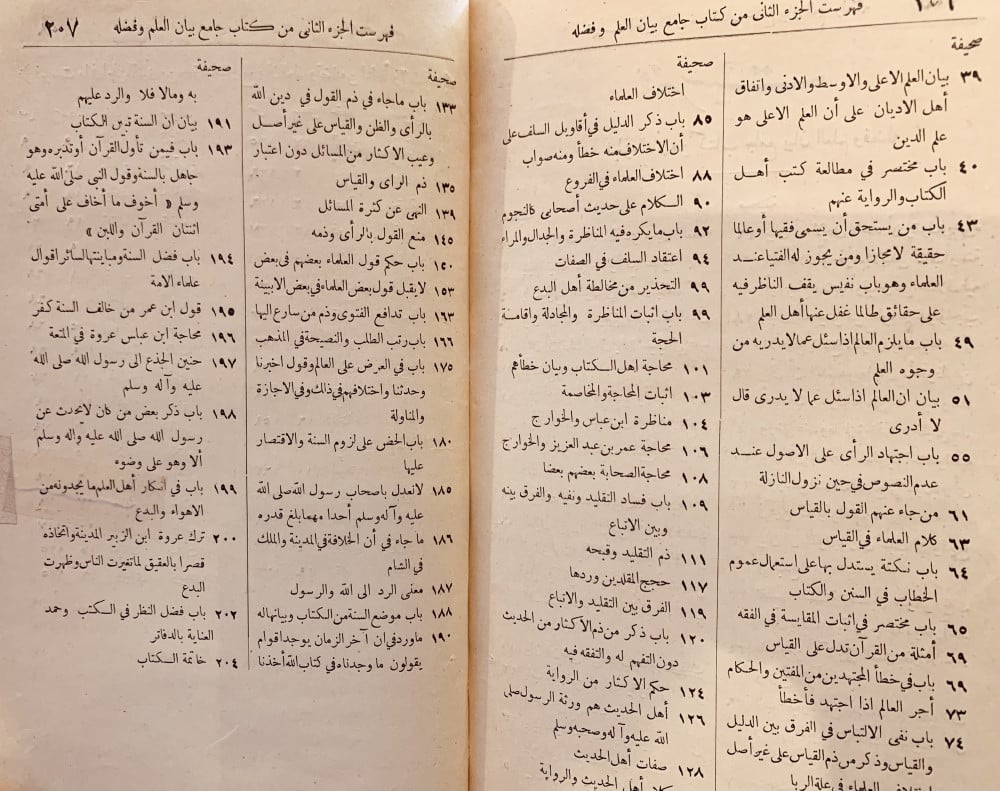 فهرست الجزء الثانى من كتاب جامع بيان العلم وفضله
صحيفة
٣٩ بيان العلم الاعلى والاوسط والادنى واتفاق
أهل الاديان على أن العلم الاعلى هو
علم الدين
٤٠ باب مختصر فى مطالعة كتب أهل
الكتاب والرواية عنهم
٤٣ باب من يستحق أن يسمى فقيها أو عالما
حقيقة لا مجازا ومن يجوز له الفتيا عند
العلماء وهو باب نفيس يقف الناظر فيه
على حقائق طالما غفل عنها أهل العلم
٤٩ باب ما يلزم العالم اذا سئل عما لا يدريه من
وجوه العلم
٥١ بيان ان العالم اذا سئل عما لا يدرى قال
لا أدرى
٥٥ باب اجتهاد الرأى على الاصول عند
عدم النصوص فى حين نزول النازلة
٦١ من جاء عنهم القول بالقياس
٦٣ كلام العلماء فى القياس
٦٤ باب نكتة يستدل بها على استعمال عموم
الخطاب في السنن والكتاب
٦٥ باب مختصر فى اثبات المقايسة فى الفقه
٦٩ أمثلة من القرآن تدل على القياس
٦٩ باب فى خطأ المجتهدين من المفتين والحكام
٧٣ أجر العالم اذا اجتهد فأخطأ
٧٤ باب نفى الالتباس فى الفرق بين الدليل
والقياس وذكر من ذم القياس على غير أصل
العلماء فى علة الربا
صحيفة
اختلاف العلماء
٨٥ باب ذكر الدليل فى أقاويل السلف على
أن الاختلاف منه خطأ ومنه صواب
٨٨ اختلاف العلماء فى الفروع
٩٠ الكلام على حديث أصحابى كالنجوم
٩٢ باب ما يكره فيه المناظرة والجدال والمراء
٩٤ اعتقاد السلف فى الصفات
٩٩ التحذير من مخالطة أهل البدع
٩٩ باب اثبات المناظرة والمجادلة واقامة
الحجة
١٠١ محاجة اهل الكتاب وبيان خطأهم
١٠٣ اثبات المحاجة والمخاصمة
١٠٤ مناظرة ابن عباس والخوارج
١٠٦ محاجة عمر بن عبد العزيز والخوارج
١٠٨ محاجة الصحابة بعضهم بعضا
١٠٩ باب فساد التقليد ونفيه والفرق بينه
وبين الاتباع
١١١ ذم التقليد وقبحه
١١٧ حجج المقلدين وردها
١١٩ الفرق بين التقليد والاتباع
١٢٠ باب ذكر من ذم الاكثار من الحديث
دون التفهم له والتفقه فيه
١٢٤ حكم الاكثار من الرواية
١٢٦ أهل الحديث هم ورثة الرسول صلى
الله عليه وآله وصحبه وسلم
١٢٨ صفات أهل الحديث
أهل الحديث والرواية
فهرست الجزء الثانى من كتاب جامع بيان العلم وفضله ٢٠٧
صحيفة
١٣٣ باب ما جاء فى ذم القول فى دين الله
بالرأى والظن والقياس على غير أصل
وعيب الاكثار من المسائل دون اعتبار
١٣٥ ذم الراى والقياس
١٣٩ النهى عن كثرة المسائل
١٤٥ منع القول بالرأى وذمه
١٥٠ باب حكم قول العلماء بعضهم فى بعض
١٥٣ لا يقبل قول بعض العلماء فى بعض الا ببينة
١٦٣ باب تدافع الفتوى وذم من سارع اليها
١٦٦ باب رتب الطلب والنصيحة فى المذهب
١٧٥ باب فى العرض على العالم وقول اخبرنا
وحدثنا واختلافهم فى ذلك وفى الاجازة
والمناولة
١٨٠ باب الحض على لزوم السنة والاقتصار
عليها
١٨٥ لا نعدل باصحاب رسول الله صلى الله
عليه وآله وسلم أحدا مهما بلغ قدره
١٨٦ ما جاء فى أن الخلافة فى المدينة والملك
فى الشام
١٨٧ معنى الرد الى الله والرسول
١٨٨ باب موضع السنة من الكتاب وبيانها له
١٩٠ ما ورد فى ان آخر الزمان يوجد اقوام
يقولون ما وجدناه فى كتاب الله أخذنا
صحيفة
به ومالا فلا والرد عليهم
١٩١ بيان ان السنة تبين الكتاب
١٩٣ باب فيمن تأول القرآن أو تدبره وهو
جاهل بالسنة وقول النبى صلى الله عليه
وسلم « أخوف ما أخاف على أمتى
اثنتان القرآن واللبن »
١٩٤ باب فضل السنة ومباينتها لسائر اقوال
علماء الامة
١٩٥ قول ابن عمر من خالف السنة كفر
١٩٦ محاجة ابن عباس عروة فى المتعة
١٩٧ حنين الجذع الى رسول الله صلى الله
عليه وآله وسلم
١٩٨ باب ذكر بعض من كان لا يحدث عن
رسول الله صلى الله عليه وآله وسلم
ألا وهو على وضوء
١٩٩ باب فى انكار أهل العلم ما يجدونه من
الاهواء والبدع
٢٠٠ ترك عروة ابن الزبير المدينة واتخاذه
قصرا بالعقيق لما تغيرت الناس وظهرت
البدع
٢٠٢ باب فضل النظر فى الكتب وحمد
العناية بالدفاتر
٢٠٤ خاتمة الكتاب